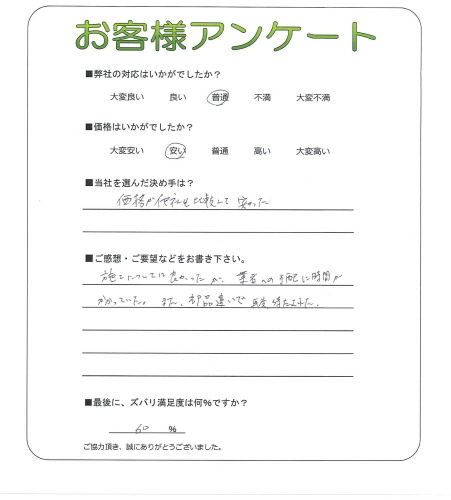 お客様アンケート
■弊社の対応はいかがでしたか？
大変良い 良い 普通 不満 大変不満
■価格はいかがでしたか？
大変安い 安い 普通 高い 大変高い
■当社を選んだ決め手は？
価格が他社と比較して安かった
■ご感想・ご要望などをお書き下さい。
施工については良かったが、業者への手配に時間が
かかっていた。また、部品違いで再度待たされた。
■最後に、ズバリ満足度は何%ですか？
60 %
ご協力頂き、誠にありがとうございました。